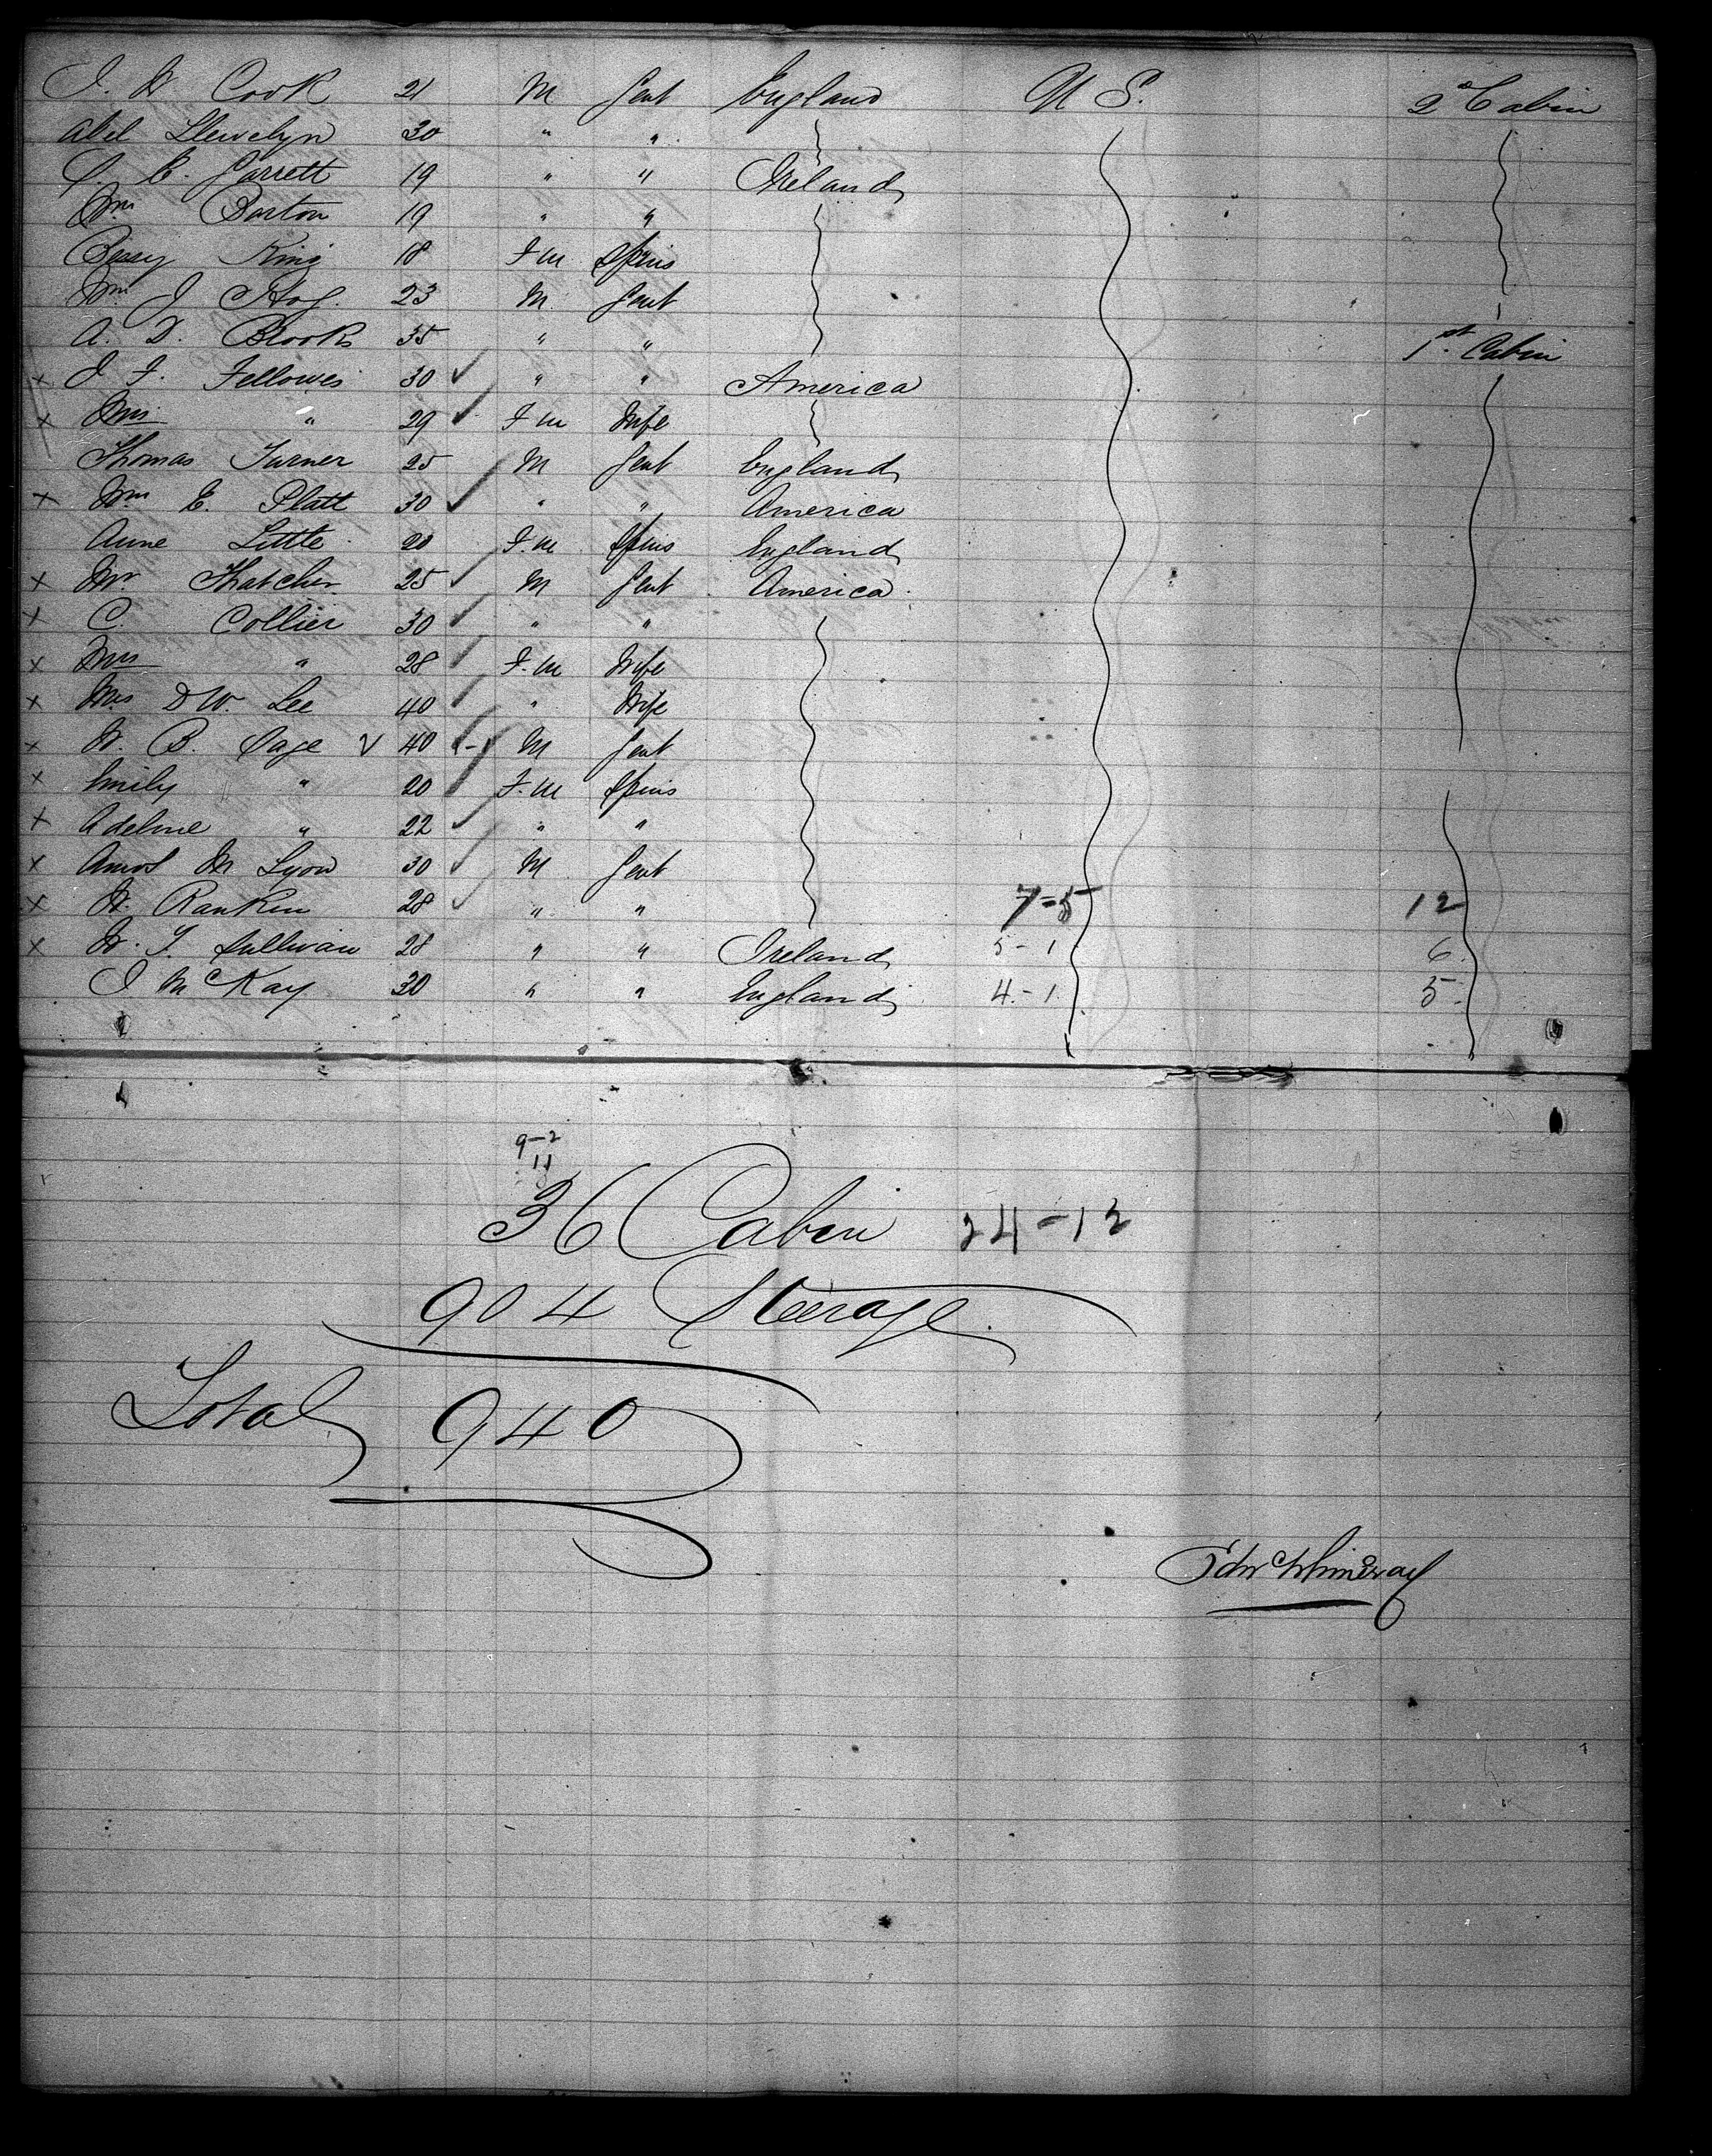 J. W. Cook 21 M Gent England U S. 2d Cabin
Abel Llewelyn 30 " "
E. Garrett 19 " " Ireland
Wm Barton 19 " "
Bessy King 18 F m Spins
Wm J Hog. 23 M. Gent
A. D. Brooks 35 " " 1st Cabin
x J F. Fellowes 30 ✓ " " America
x Mrs " 29 ✓ F m Wife
Thomas Turner 25 M Gent England
x Wm E. Platt 30 ✓ " " America
Anne Little 20 F. m Spins England
x Mr Thatcher 25 ✓ M Gent America
x C. Collier 30 ✓ " "
x Mrs " 28 ✓ F. m Wife
x Mrs D W. Lee 40 ✓ " Wife
x W. B. Page V 40 M Gent
x Emily " 20 ✓ F. m Spins
x Adeline " 22 ✓ " "
x Amos M Lyon 30 ✓ M Gent
x W. Rankin 28 ✓ " " 7-5 12
x W. T. Sullivan 28 " " Ireland 5-1 6.
J McKay 30 " " England 4.-1 5.
9-2
11
36 Cabin 24-12
904 Steerage
Total 940
Edw